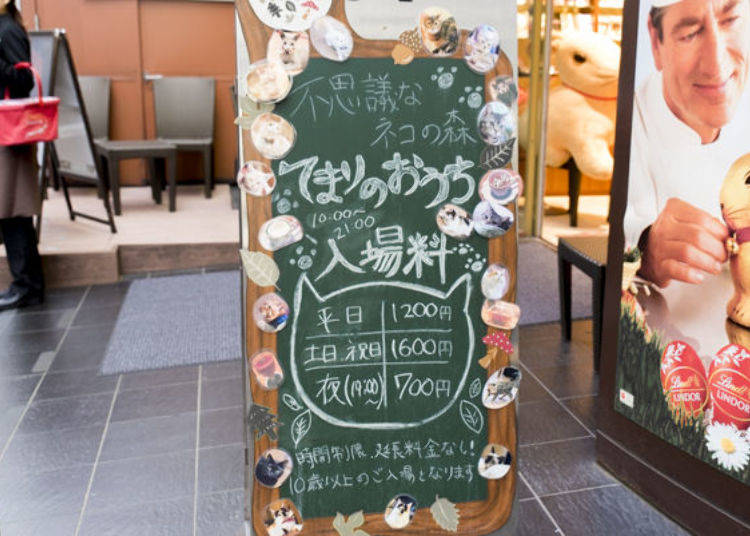 不思議な
ネコの森
てまりのおうち
10:00～
21:00
入場料
平日 1200円
土日.祝日 1600円
夜(19:00～) 700円
時間制限.延長料金なし!
10歳以上のご入場となります
Lindt
LINDOR
Lindt
LINDOR